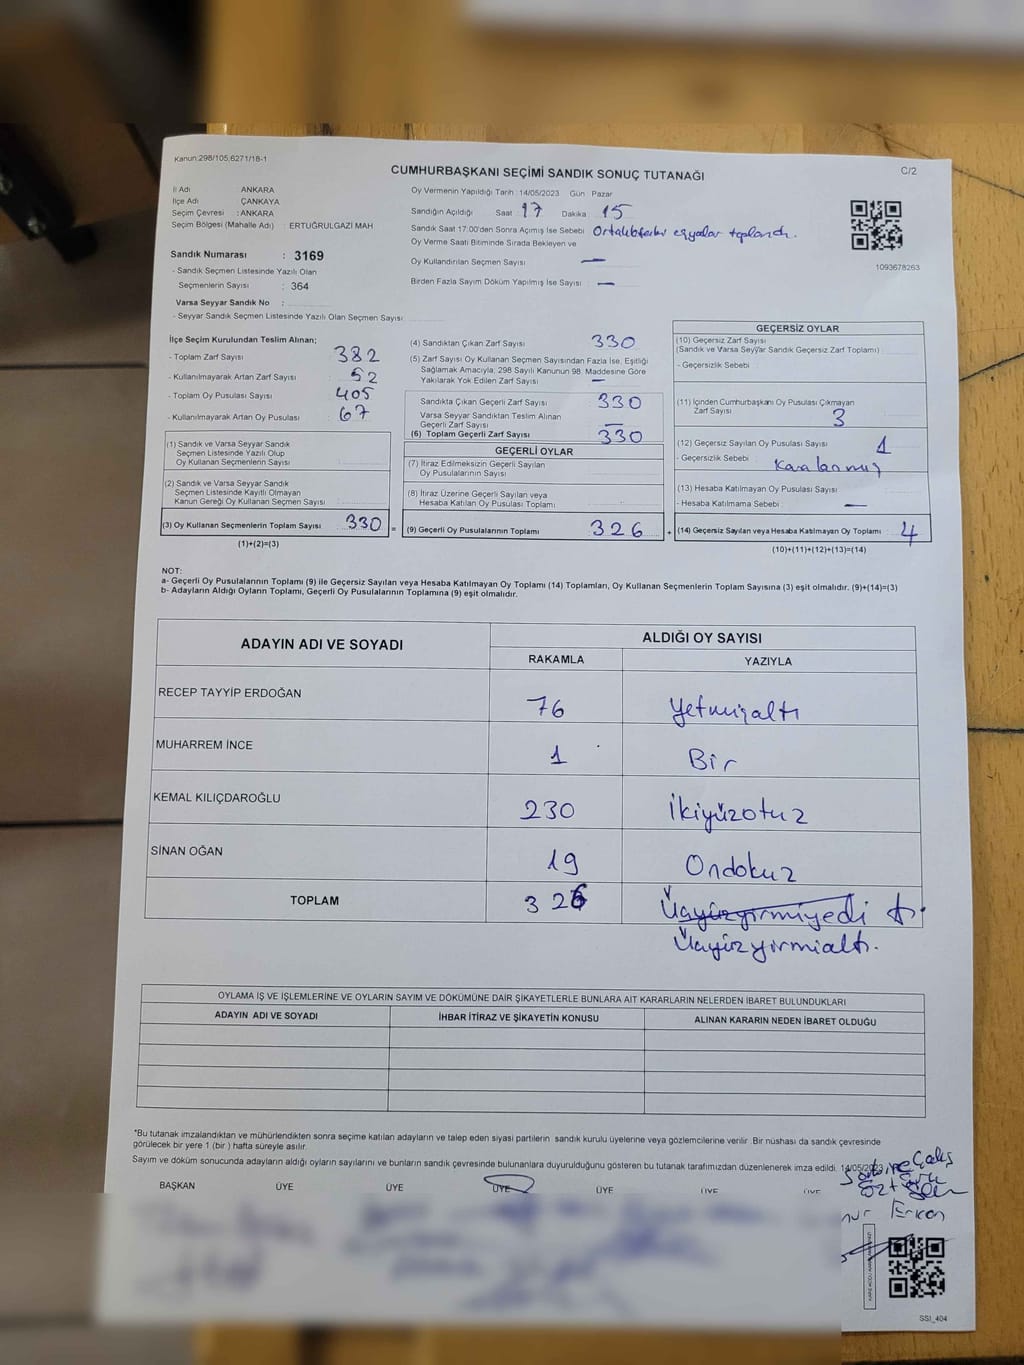 Kanun:298/105,6271/18-1
CUMHURBAŞKANI SEÇİMİ SANDIK SONUÇ TUTANAĞI
C/2
İl Adı ANKARA
İlçe Adı ÇANKAYA
Seçim Çevresi : ANKARA
Seçim Bölgesi (Mahalle Adı) : ERTUĞRULGAZİ MAH
Oy Vermenin Yapıldığı Tarih : 14/05/2023 Gün Pazar
Sandığın Açıldığı Saat 17 Dakika 15
Sandık Saat 17:00'den Sonra Açımış İse Sebebi eşyalar toplandı.
Oy Verme Saati Bitiminde Sırada Bekleyen ve
Oy Kullandırılan Seçmen Sayısı —
Birden Fazla Sayım Döküm Yapılmış İse Sayısı : —
1093678263
Sandık Numarası : 3169
- Sandık Seçmen Listesinde Yazılı Olan
Seçmenlerin Sayısı : 364
Varsa Seyyar Sandık No :
- Seyyar Sandık Seçmen Listesinde Yazılı Olan Seçmen Sayısı
İlçe Seçim Kurulundan Teslim Alınan;
- Toplam Zarf Sayısı 382
- Kullanılmayarak Artan Zarf Sayısı 52
- Toplam Oy Pusulası Sayısı 405
- Kullanılmayarak Artan Oy Pusulası 67
(1) Sandık ve Varsa Seyyar Sandık
Seçmen Listesinde Yazılı Olup
Oy Kullanan Seçmenlerin Sayısı
(2) Sandık ve Varsa Seyyar Sandık
Seçmen Listesinde Kayıtlı Olmayan
Kanun Gereği Oy Kullanan Seçmen Sayısı
(3) Oy Kullanan Seçmenlerin Toplam Sayısı 330 =
(1)+(2)=(3)
(4) Sandıktan Çıkan Zarf Sayısı 330
(5) Zarf Sayısı Oy Kullanan Seçmen Sayısından Fazla İse, Eşitliği
Sağlamak Amacıyla, 298 Sayılı Kanunun 98. Maddesine Göre
Yakılarak Yok Edilen Zarf Sayısı —
Sandıkta Çıkan Geçerli Zarf Sayısı 330
Varsa Seyyar Sandıktan Teslim Alınan
Geçerli Zarf Sayısı —
(6) Toplam Geçerli Zarf Sayısı 330
GEÇERLİ OYLAR
(7) İtiraz Edilmeksizin Geçerli Sayılan
Oy Pusulalarının Sayısı
(8) İtiraz Üzerine Geçerli Sayılan veya
Hesaba Katılan Oy Pusulası Toplamı
(9) Geçerli Oy Pusulalarının Toplamı 326 +
GEÇERSİZ OYLAR
(10) Geçersiz Zarf Sayısı
(Sandık ve Varsa Seyyar Sandık Geçersiz Zarf Toplamı)
- Geçersizlik Sebebi
(11) İçinden Cumhurbaşkanı Oy Pusulası Çıkmayan
Zarf Sayısı 3
(12) Geçersiz Sayılan Oy Pusulası Sayısı 1
- Geçersizlik Sebebi : Karalanmış
(13) Hesaba Katılmayan Oy Pusulası Sayısı
- Hesaba Katılmama Sebebi —
(14) Geçersiz Sayılan veya Hesaba Katılmayan Oy Toplamı 4
(10)+(11)+(12)+(13)=(14)
NOT:
a- Geçerli Oy Pusulalarının Toplamı (9) ile Geçersiz Sayılan veya Hesaba Katılmayan Oy Toplamı (14) Toplamları, Oy Kullanan Seçmenlerin Toplam Sayısına (3) eşit olmalıdır. (9)+(14)=(3)
b- Adayların Aldığı Oyların Toplamı, Geçerli Oy Pusulalarının Toplamına (9) eşit olmalıdır.
ADAYIN ADI VE SOYADI
ALDIĞI OY SAYISI
RAKAMLA YAZIYLA
RECEP TAYYİP ERDOĞAN 76 Yetmişaltı
MUHARREM İNCE 1 Bir
KEMAL KILIÇDAROĞLU 230 İkiyüzotuz
SİNAN OĞAN 19 Ondokuz
TOPLAM 326 Üçyüzyirmiyedi
Üçyüzyirmialtı.
OYLAMA İŞ VE İŞLEMLERİNE VE OYLARIN SAYIM VE DÖKÜMÜNE DAİR ŞİKAYETLERLE BUNLARA AİT KARARLARIN NELERDEN İBARET BULUNDUKLARI
ADAYIN ADI VE SOYADI İHBAR İTİRAZ VE ŞİKAYETİN KONUSU ALINAN KARARIN NEDEN İBARET OLDUĞU
*Bu tutanak imzalandıktan ve mühürlendikten sonra seçime katılan adayların ve talep eden siyasi partilerin sandık kurulu üyelerine veya gözlemcilerine verilir. Bir nüshası da sandık çevresinde
görülecek bir yere 1 (bir) hafta süreyle asılır.
Sayım ve döküm sonucunda adayların aldığı oyların sayılarını ve bunların sandık çevresinde bulunanlara duyurulduğunu gösteren bu tutanak tarafımızdan düzenlenerek imza edildi. 14/05/2023
BAŞKAN ÜYE ÜYE ÜYE ÜYE ÜYE ÜYE
SSI_404